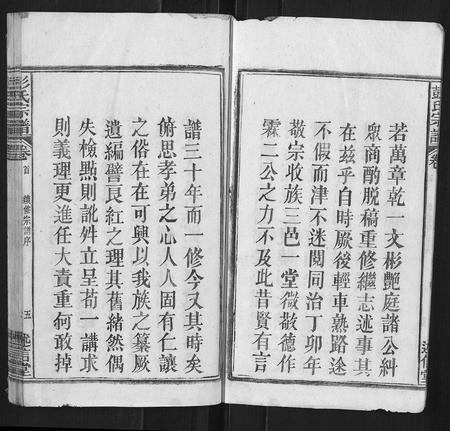 若萬章乾一文彬艷庭諸公糾
眾商酌脫稿重修繼志述事其
在茲乎自時厥後輕車熟路途
不假而津不迷閱同治丁卯年
敬宗收族三邑一堂微敬德作
霖二公之力不及此昔賢有言
譜三十年而一修今又其時矣
俯思孝弟之心人人固有仁讓
之俗在在可興以我族之纂厥
遺編譬長紅之理其舊緒然偶
失檢點則訛舛立呈苟一講求
則義理更進任大責重何敢掉
彭氏宗譜
卷首
續修宗譜序
五
述信堂
彭氏宗譜
卷
述信堂